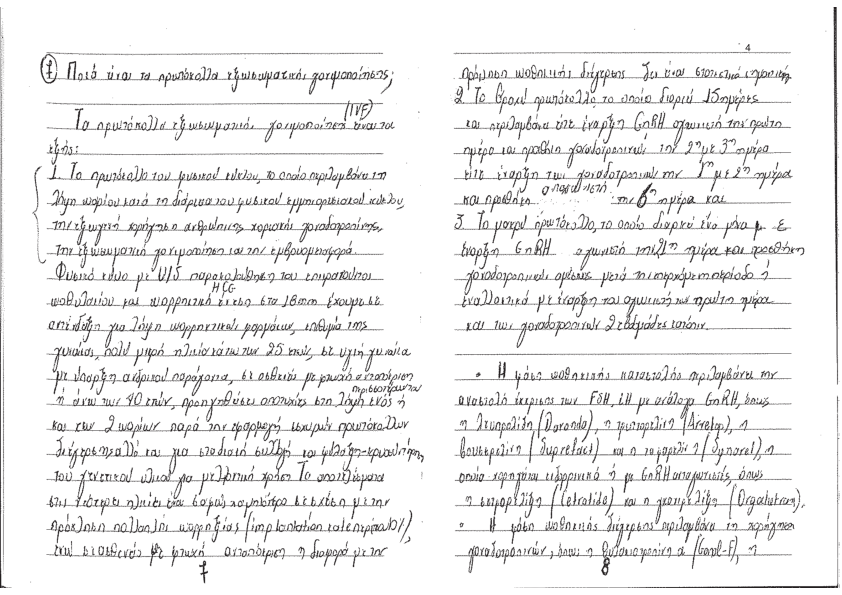 ⑦ Ποιά είναι τα πρωτόκολλα εξωσωματικής γονιμοποίησης;
(IVF)
Τα πρωτόκολλα εξωσωματικής γονιμοποίησης είναι τα
εξής:
1. Το πρωτόκολλο του φυσικού κύκλου, το οποίο περιλαμβάνει τη
λήψη ωαρίου κατά τη διάρκεια του φυσικού εμμηνορυσιακού κύκλου,
την εξωγενή χορήγηση ανθρώπινης χοριακής γοναδοτροπίνης,
την εξωσωματική γονιμοποίηση και την εμβρυομεταφορά.
Φυσικό κύκλο με U/S παρακολούθηση του επικρατούντος
HCG
ωοθυλακίου και ωορρηκτική ένεση στα 18mm έχουμε σε
αντένδειξη για λήψη ωορρηκτικών φαρμάκων, επιθυμία της
γυναίκας, πολύ μικρή ηλικία κάτω των 25 ετών, σε υγιή γυναίκα
με ύπαρξη ανδρικού παράγοντα, σε ασθενείς με φτωχή ανταπόκριση
περισσοτέρων του
ή άνω των 40 ετών, προηγηθείσες αποτυχίες στη λήψη ενός ή
και των 2 ωαρίων παρά την εφαρμογή ισχυρών πρωτοκόλλων
διέγερσης αλλά και για σταδιακή συλλογή και φύλαξη-κρυοσυντήρηση
του γενετικού υλικού για μελλοντική χρήση. Τα αποτελέσματα
στις νεότερες ηλικίες είναι σαφώς χαμηλότερα σε σχέση με την
πρόκληση πολλαπλής ωορρηξίας (implantation rate περίπου 10%),
ενώ σε ασθενείς με φτωχή ανταπόκριση η διαφορά με την
7
4
πρόκληση ωοθηκικής διέγερσης δεν είναι στατιστικά σημαντική.
2. Το βραχύ πρωτόκολλο, το οποίο διαρκεί 15 ημέρες
και περιλαμβάνει είτε έναρξη GnRH αγωνιστή την πρώτη
ημέρα και προσθήκη γοναδοτροπινών την 2η με 3η ημέρα
είτε έναρξη των γοναδοτροπινών την 1η με 2η ημέρα
και προσθήκη ανταγωνιστή την 6η ημέρα και
3. Το μακρύ πρωτόκολλο, το οποίο διαρκεί ένα μήνα με
έναρξη GnRH αγωνιστή την 21η ημέρα και προσθήκη
γοναδοτροπινών αμέσως μετά την επερχόμενη περίοδο ή
εναλλακτικά με έναρξη του αγωνιστή την πρώτη ημέρα
και των γοναδοτροπινών 2 εβδομάδες κατόπιν.
• Η φάση ωοθηκικής καταστολής περιλαμβάνει την
αναστολή έκκρισης των FSH, LH με ανάλογα GnRH, όπως
η λευπρολίδη (Daronda), η τριπτορελίνη (Arvekap), η
βουσερελίνη (Suprefact) και η ναφαρελίνη (Synarel), η
οποία χορηγείται ενδορρινικά ή με GnRH ανταγωνιστές, όπως
η σετρορελίξη (Cetrotide) και η γκανιρελίξη (Orgalutran).
• Η φάση ωοθηκικής διέγερσης περιλαμβάνει τη χορήγηση
γοναδοτροπινών, όπως η θυλακιοτροπίνη α (Gonal-F), η
8